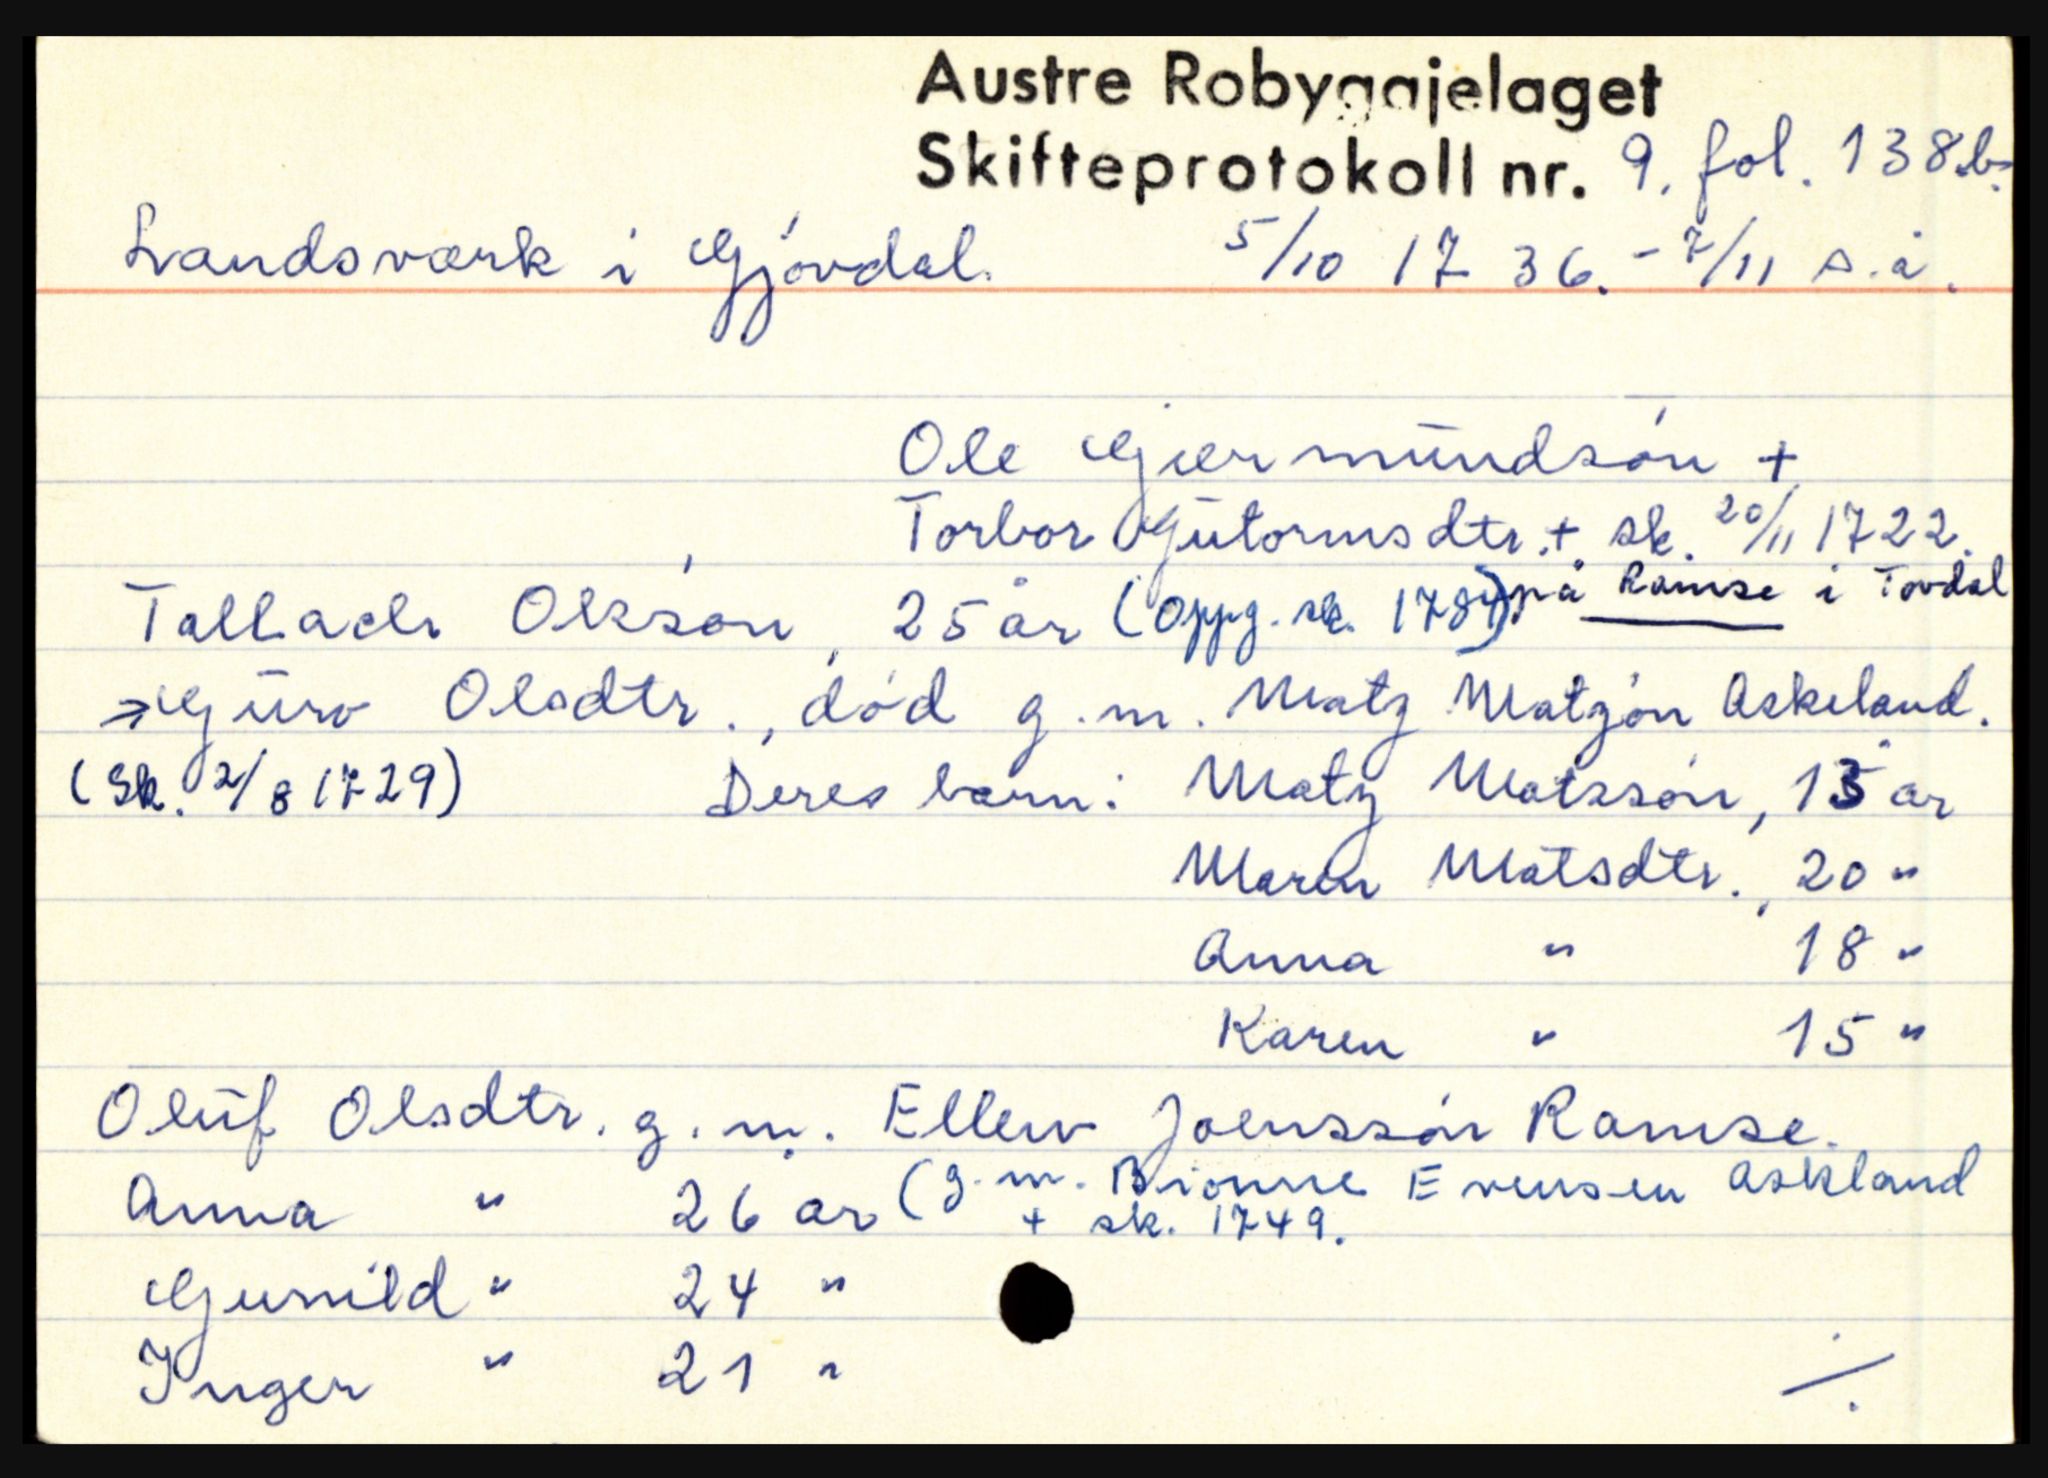 Austre Robyggjelaget
Skifteprotokoll nr. 9. fol. 138.b.
Landsværk i Gjövdal. 5/10 1736. - 7/11 s.å.
Ole Gjermundsön +
Torbor Gutormsdtr. + sk. 20/11 1722.
Tallach Olssön, 25 år (Oppg. sk. 1784) på Ramse i Tovdal
→ Guro Olsdtr., död g.m. Matz Matzön Askeland.
(Sk. 2/8 1729) Deres barn: Matz Matssön, 13 år
Maren Matsdtr., 20 "
Anna " 18 "
Karen " 15 "
Oluf Olsdtr. g.m. Ellew Joenssön Ramse.
Anna " 26 år (g.m. Bionne Evensen Askland
+ sk. 1749.
Gunild " 24 "
Inger " 21 "
./.